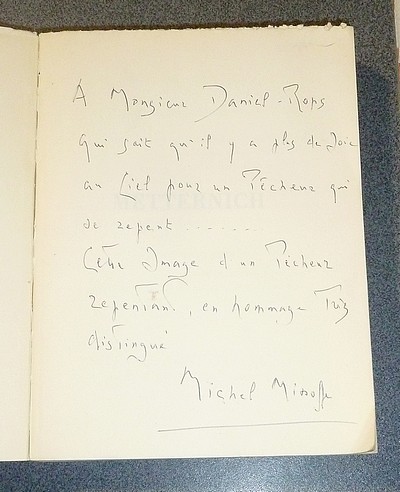 À Monsieur Daniel-Rops
qui sait qu'il y a plus de Joie
au Ciel pour un Pécheur qui
se repent.......
Cette Image d'un Pécheur
repentant, en hommage Très
distingué
Michel Missoffe